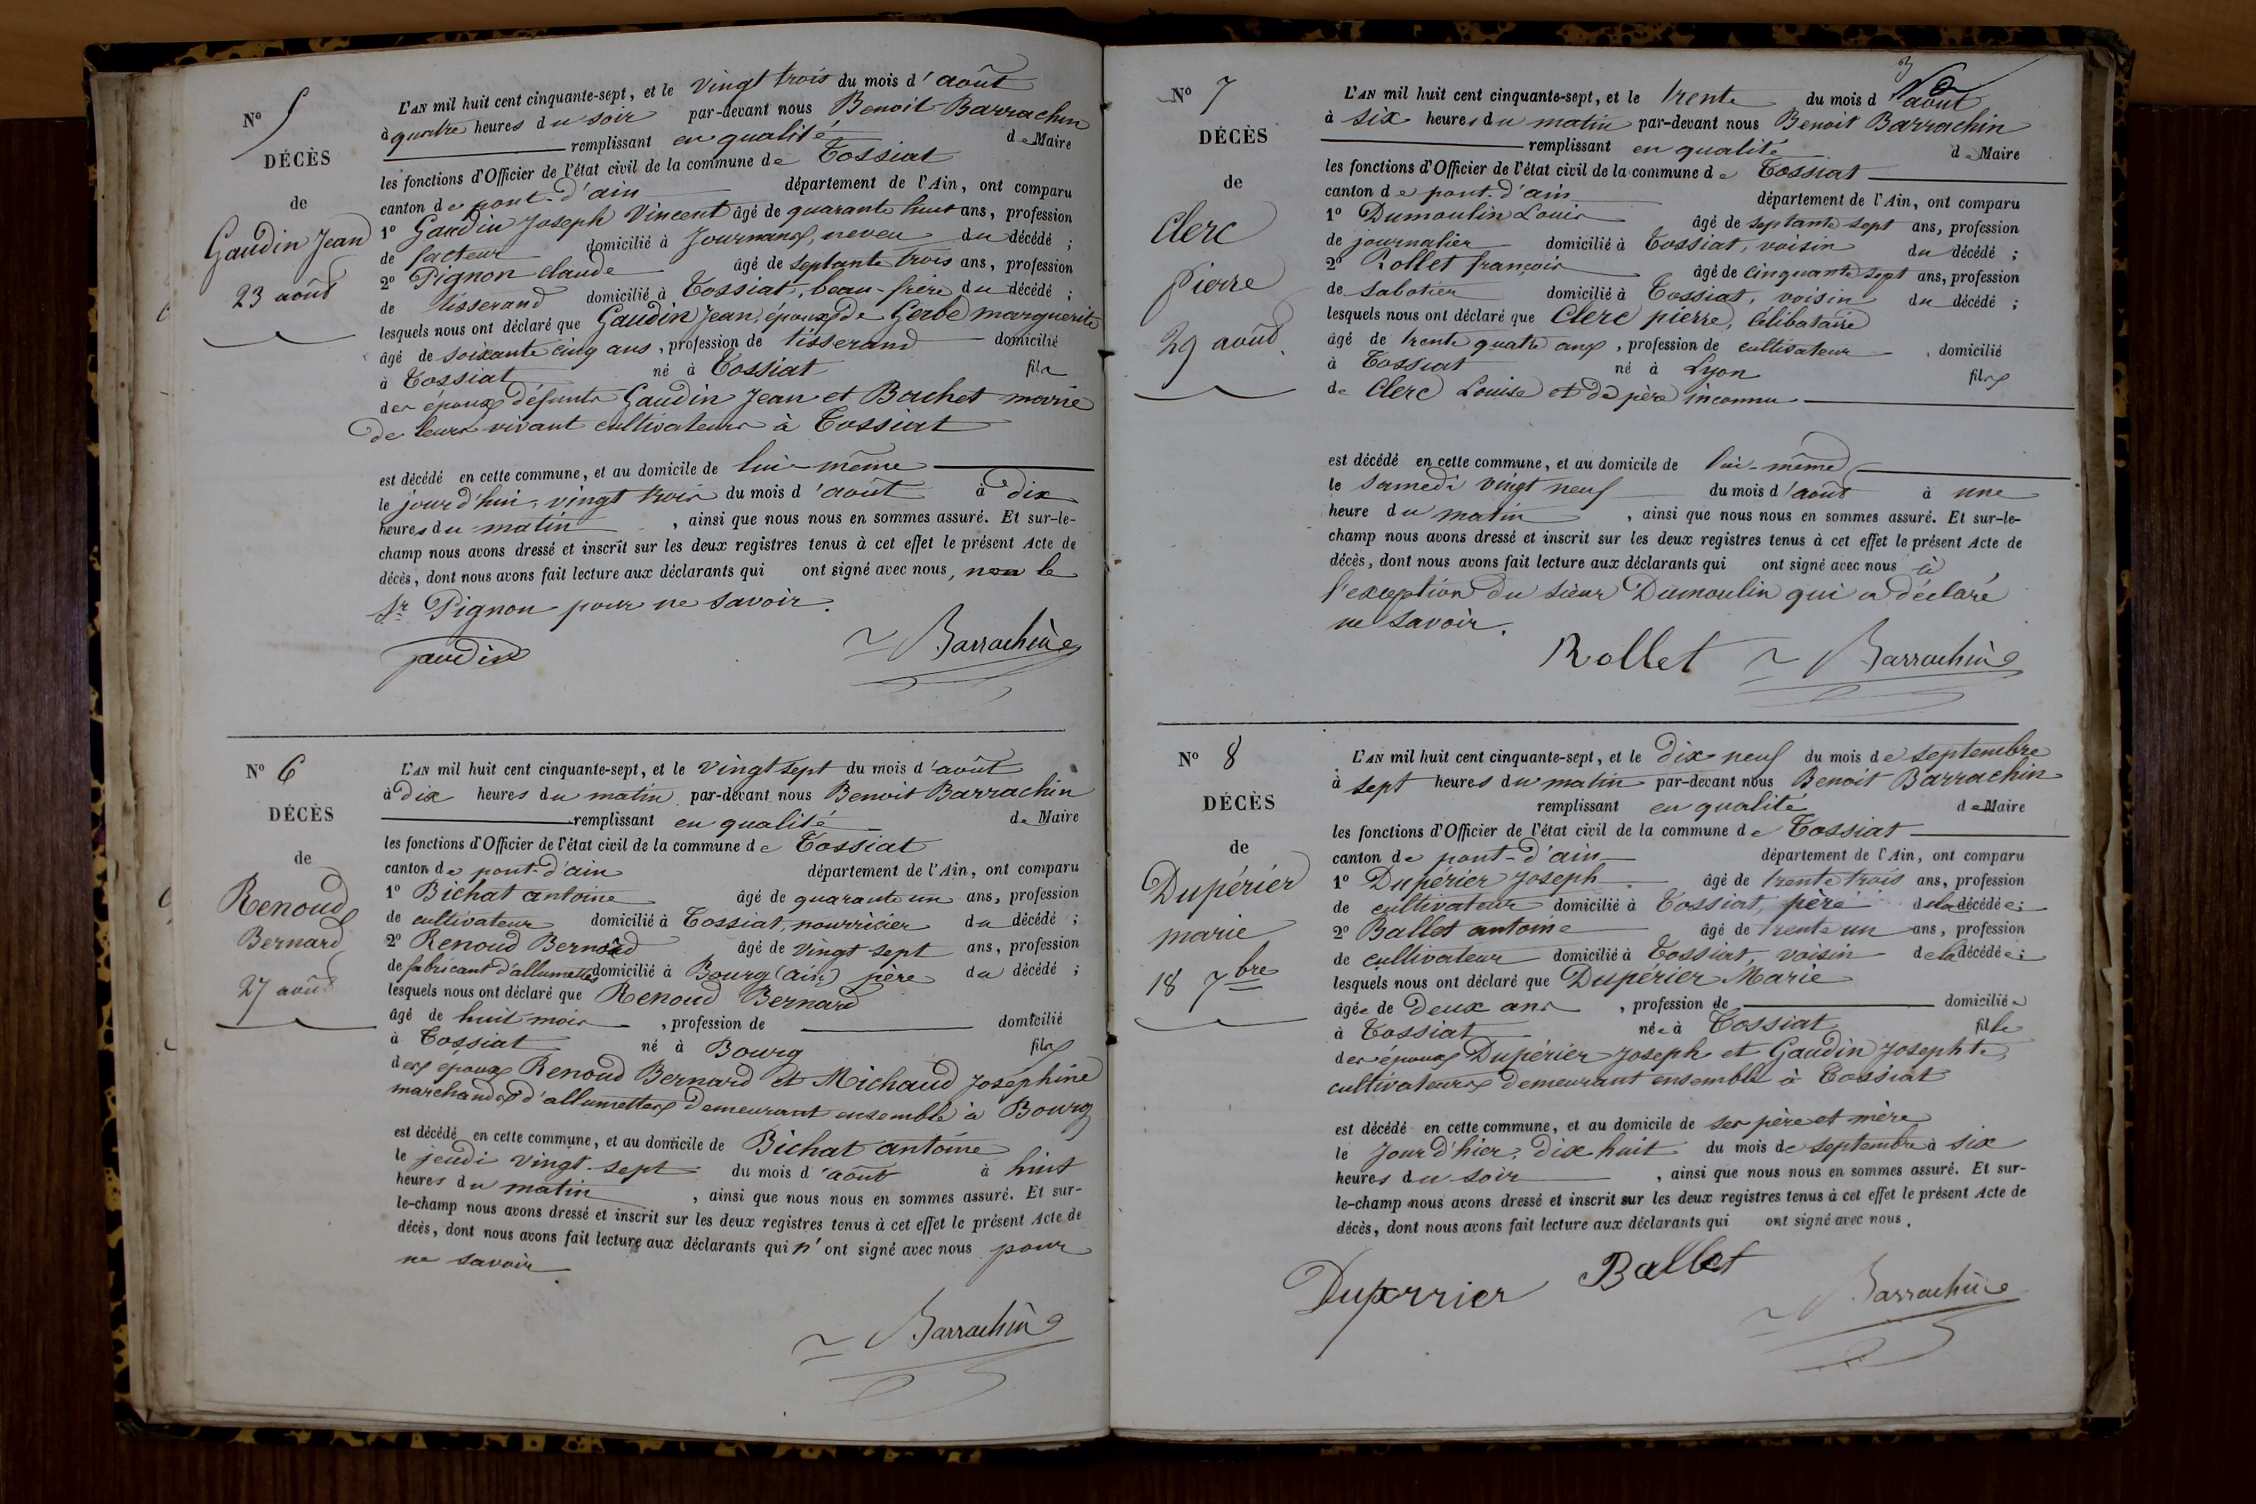 Nº 5
DÉCÈS
de
Gaudin Jean
23 août
L'AN mil huit cent cinquante-sept, et le vingt trois du mois d'août
à quatre heures du soir par-devant nous Benoit Barrachin
remplissant en qualité de Maire
les fonctions d'Officier de l'état civil de la commune de Tossiat
canton de pont-d'ain département de l'Ain, ont comparu
1º Gaudin Joseph Vincent âgé de quarante huit ans, profession
de facteur domicilié à Journans, neveu du décédé ;
2º Pignon claude âgé de septante trois ans, profession
de tisserand domicilié à Tossiat, beau-frère du décédé ;
lesquels nous ont déclaré que Gaudin Jean, époux de Gerbe marguerite
âgé de soixante cinq ans, profession de tisserand domicilié
à Tossiat né à Tossiat fils
des époux défunts Gaudin Jean et Bachet marie
de leurs vivant cultivateurs à Tossiat
est décédé en cette commune, et au domicile de lui-même
le jourd'hui, vingt trois du mois d'août à dix
heures du matin, ainsi que nous nous en sommes assuré. Et sur-le-
champ nous avons dressé et inscrit sur les deux registres tenus à cet effet le présent Acte de
décès, dont nous avons fait lecture aux déclarants qui ont signé avec nous, non le
Sr Pignon pour ne savoir.
Gaudin Barrachin
Nº 6
DÉCÈS
de
Renoud
Bernard
27 août
L'AN mil huit cent cinquante-sept, et le vingt sept du mois d'août
à dix heures du matin par-devant nous Benoit Barrachin
remplissant en qualité de Maire
les fonctions d'Officier de l'état civil de la commune de Tossiat
canton de pont-d'ain département de l'Ain, ont comparu
1º Bichat antoine âgé de quarante un ans, profession
de cultivateur domicilié à Tossiat, nourricier du décédé ;
2º Renoud Bernard âgé de vingt sept ans, profession
de fabricant d'allumettes domicilié à Bourg (ain) père du décédé ;
lesquels nous ont déclaré que Renoud Bernard
âgé de huit mois, profession de domicilié
à Tossiat né à Bourg fils
des époux Renoud Bernard et Michaud Josephine
marchands d'allumettes demeurant ensemble à Bourg
est décédé en cette commune, et au domicile de Bichat antoine
le jeudi vingt-sept du mois d'août à huit
heures du matin, ainsi que nous nous en sommes assuré. Et sur-
le-champ nous avons dressé et inscrit sur les deux registres tenus à cet effet le présent Acte de
décès, dont nous avons fait lecture aux déclarants qui n'ont signé avec nous pour
ne savoir
Barrachin
3
Nº 7
DÉCÈS
de
Clerc
pierre
29 août
L'AN mil huit cent cinquante-sept, et le trente du mois d'août
à six heures du matin par-devant nous Benoit Barrachin
remplissant en qualité de Maire
les fonctions d'Officier de l'état civil de la commune de Tossiat
canton de pont-d'ain département de l'Ain, ont comparu
1º Dumoulin Louis âgé de septante sept ans, profession
de journalier domicilié à Tossiat, voisin du décédé ;
2º Rollet françois âgé de cinquante sept ans, profession
de sabotier domicilié à Tossiat, voisin du décédé ;
lesquels nous ont déclaré que Clerc pierre, célibataire
âgé de trente quatre ans, profession de cultivateur, domicilié
à Tossiat né à Lyon fils
de Clerc Louise et de père inconnu
est décédé en cette commune, et au domicile de lui-même
le samedi vingt neuf du mois d'août à une
heure du matin, ainsi que nous nous en sommes assuré. Et sur-le-
champ nous avons dressé et inscrit sur les deux registres tenus à cet effet le présent Acte de
décès, dont nous avons fait lecture aux déclarants qui ont signé avec nous à
l'exception du sieur Dumoulin qui a déclaré
ne savoir.
Rollet Barrachin
Nº 8
DÉCÈS
de
Dupérier
marie
18 7bre
L'AN mil huit cent cinquante-sept, et le dix neuf du mois de septembre
à sept heures du matin par-devant nous Benoit Barrachin
remplissant en qualité de Maire
les fonctions d'Officier de l'état civil de la commune de Tossiat
canton de pont-d'ain département de l'Ain, ont comparu
1º Dupérier Joseph âgé de trente trois ans, profession
de cultivateur domicilié à Tossiat, père de la décédée ;
2º Ballet antoine âgé de trente un ans, profession
de cultivateur domicilié à Tossiat, voisin de la décédée ;
lesquels nous ont déclaré que Dupérier Marie
âgée de Deux ans, profession de domiciliée
à Tossiat née à Tossiat fille
des époux Dupérier Joseph et Gaudin Josephte,
cultivateurs demeurant ensemble à Tossiat
est décédé en cette commune, et au domicile de ses père et mère
le Jour d'hier, dix huit du mois de septembre à six
heures du soir, ainsi que nous nous en sommes assuré. Et sur-
le-champ nous avons dressé et inscrit sur les deux registres tenus à cet effet le présent Acte de
décès, dont nous avons fait lecture aux déclarants qui ont signé avec nous.
Duperrier Ballet Barrachin